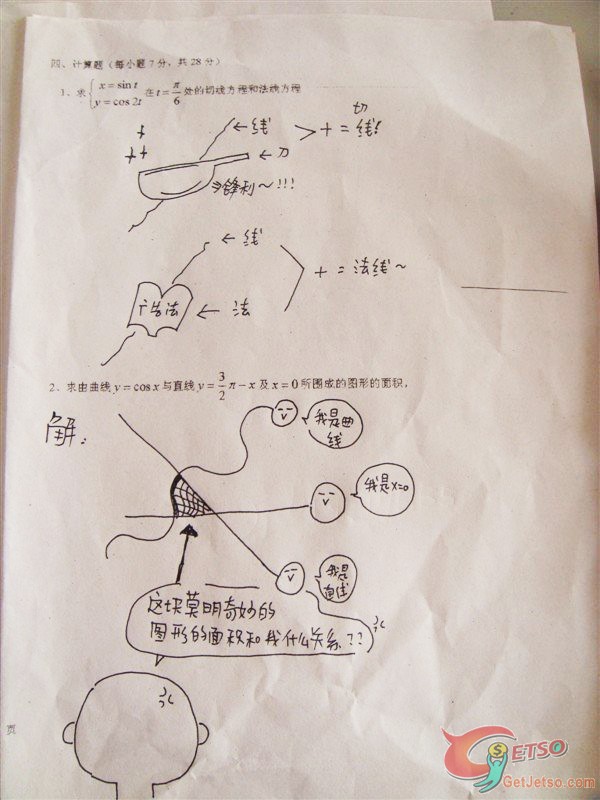 四、计算题（每小题7分，共28分）
1、求{x=sin t y=cos 2t 在 t=π/6 处的切线方程和法线方程
← 线
← 刀
⇒锋利～!!!
+ = 切线!
← 线
广告法
← 法
+ = 法线～
2、求由曲线 y=cos x 与直线 y=3/2 π-x 及 x=0 所围成的图形的面积，
解：
我是曲
线
我是x=0
我是
直线
这块莫明奇妙的
图形的面积和我什么关系??
页
GETSO
GetJetso.com